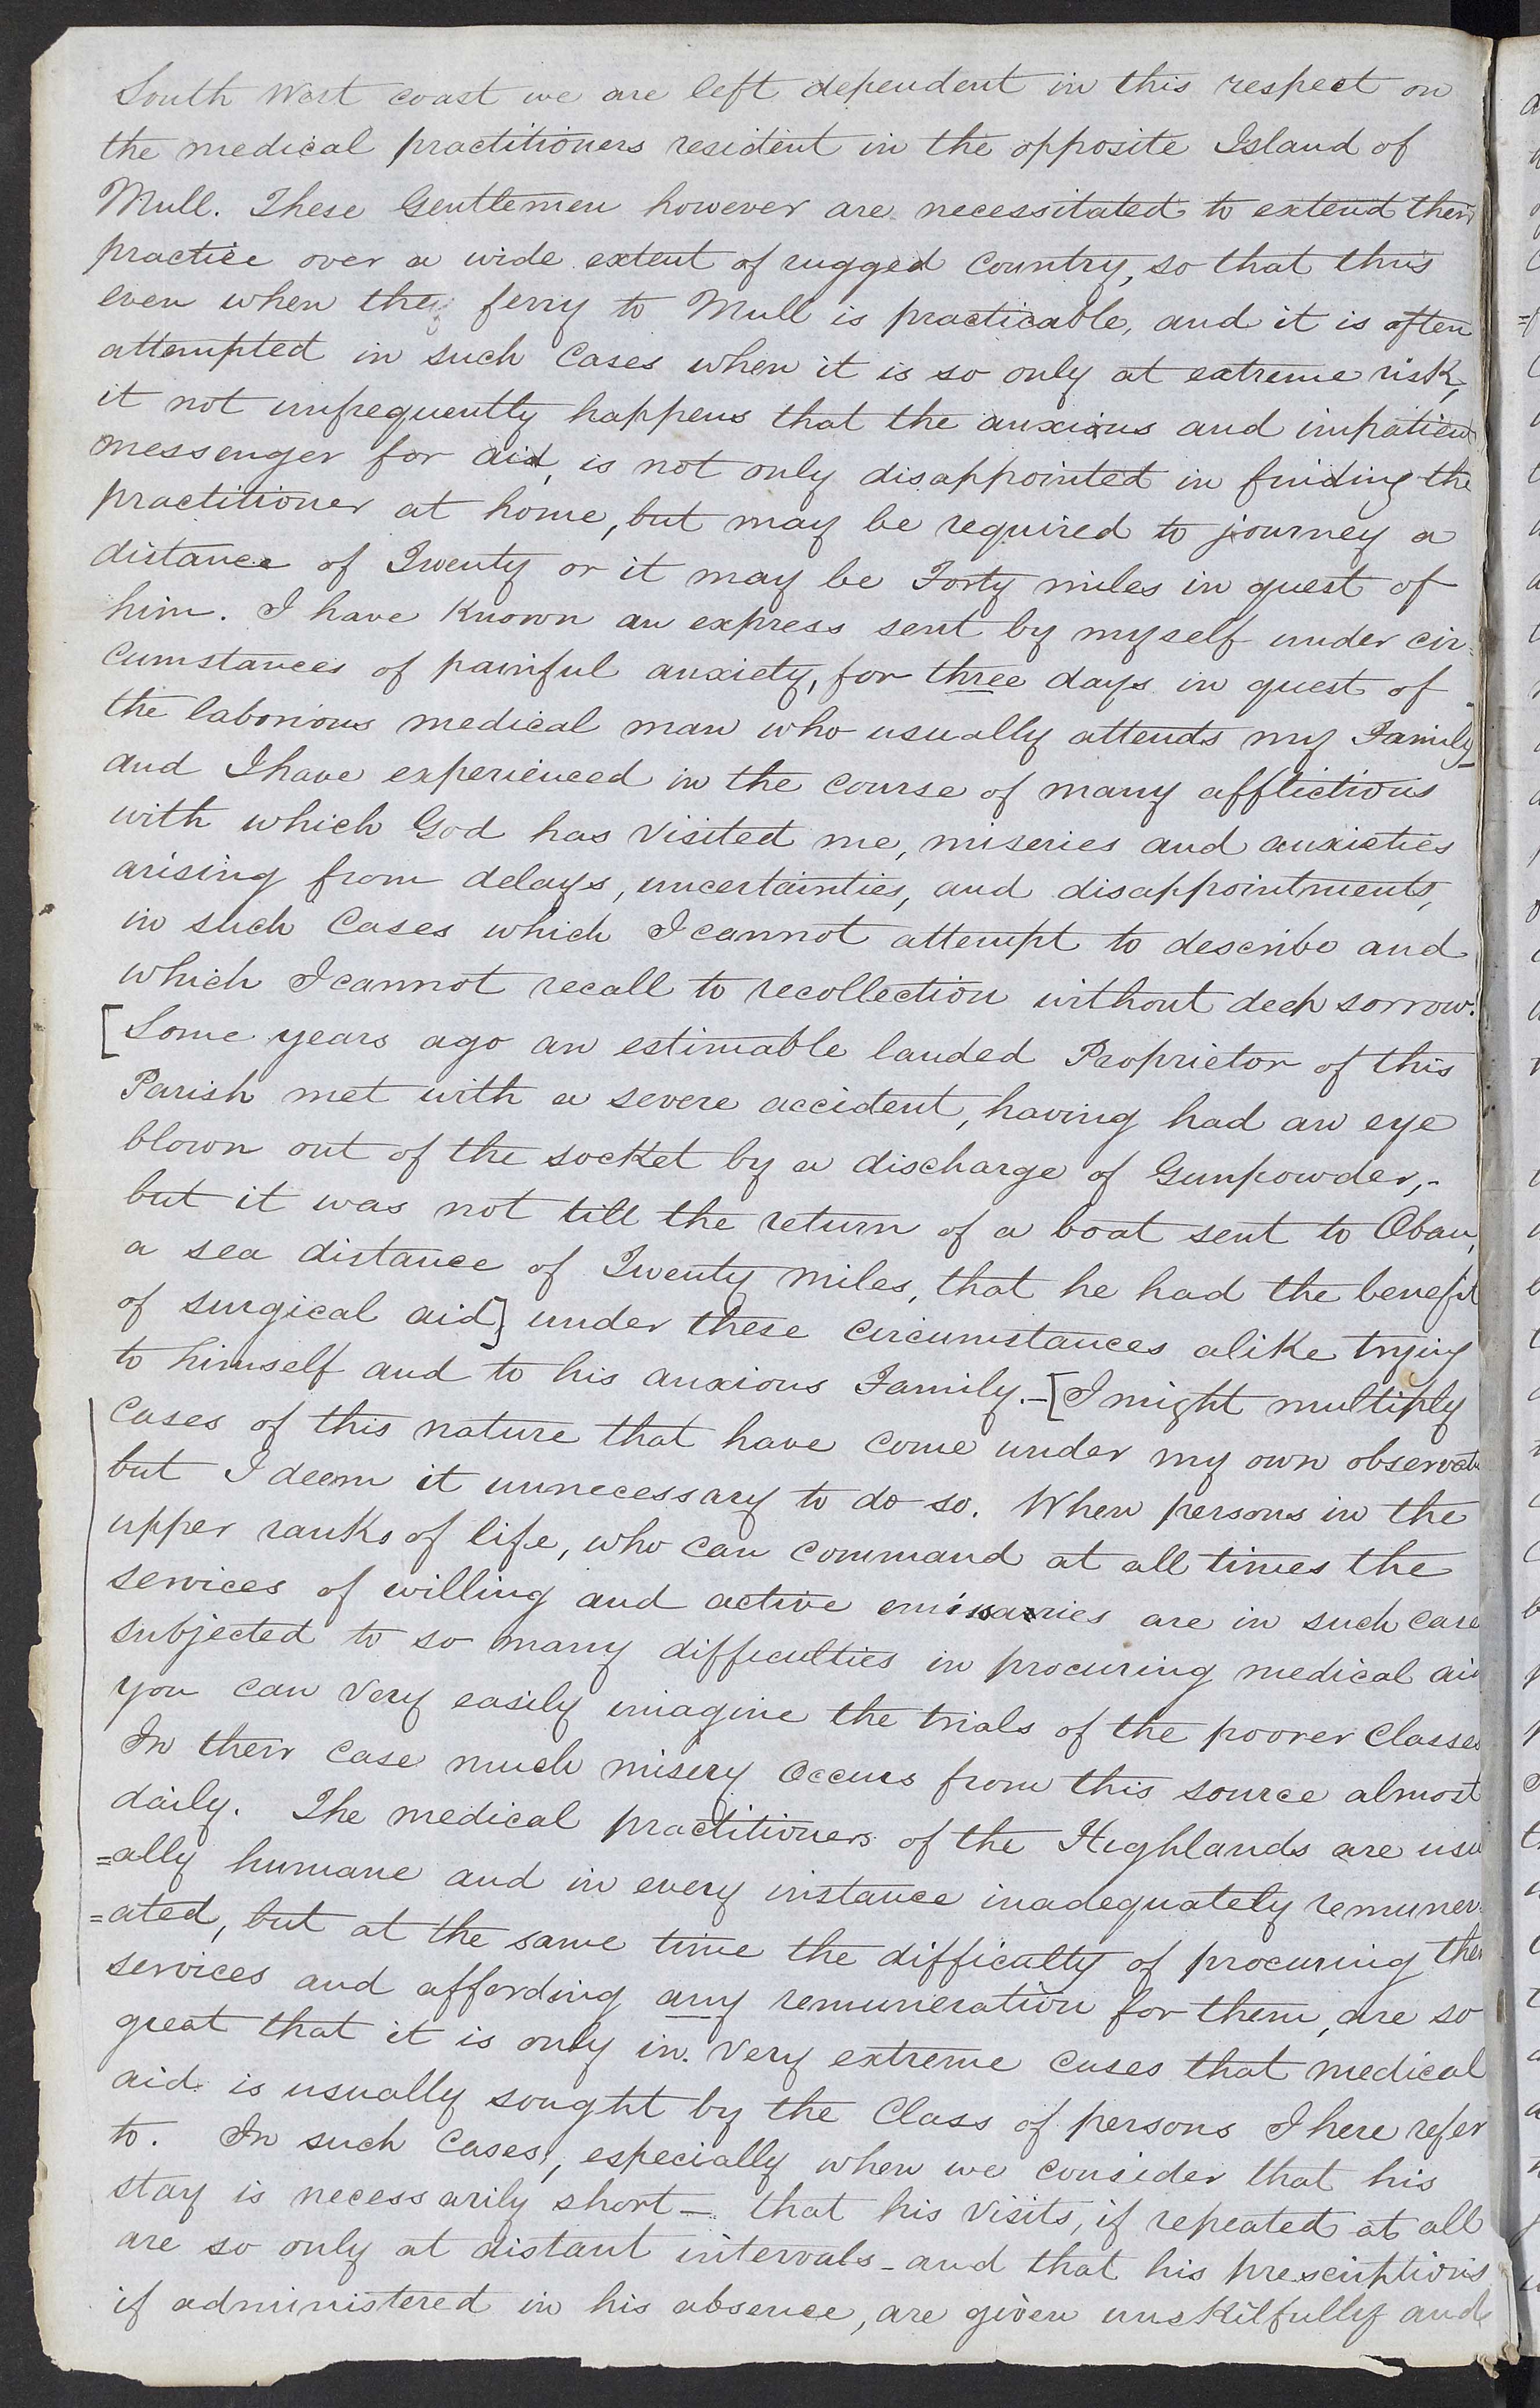 South West coast we are left dependent in this respect on
the medical practitioners resident in the opposite Island of
Mull. These Gentlemen however are necessitated to extend their
practice over a wide extent of rugged country, so that thus
even when the ferry to Mull is practicable, and it is often
attempted in such cases when it is so only at extreme risk,
it not unfrequently happens that the anxious and impatient
messenger for aid, is not only disappointed in finding the
practitioner at home, but may be required to journey a
distance of Twenty or it may be Forty miles in quest of
him. I have known an express sent by myself under cir=
cumstances of painful anxiety, for three days in quest of
the laborious medical man who usually attends my Family_
and I have experienced in the course of many afflictions
with which God has visited me, miseries and anxieties
arising from delays, uncertainties, and disappointments,
in such Cases which I cannot attempt to describe and
which I cannot recall to recollection without deep sorrow.
[Some years ago an estimable landed Proprietor of this
Parish met with a severe accident, having had an eye
blown out of the socket by a discharge of Gunpowder,-
but it was not till the return of a boat sent to Oban,
a sea distance of Twenty miles, that he had the benefit
of surgical aid] under these circumstances alike trying
to himself and to his anxious Family.-[I might multiply
cases of this nature that have come under my own observat
but I deem it unnecessary to do so. When persons in the
upper ranks of life, who can command at all times the
services of willing and active emissaries are in such case
subjected to so many difficulties in procuring medical aid
you can very easily imagine the trials of the poorer Classes
In their case much misery occurs from this source almost
daily. The medical practitioners of the Highlands are usu
=ally humane and in every instance inadequately remuner=
=ated, but at the same time the difficulty of procuring their
services and affording any remuneration for them, are so
great that it is only in very extreme cases that medical
aid is usually sought by the Class of persons I here refer
to. In such Cases, especially when we consider that his
stay is necessarily short_ that his visits, if repeated at all
are so only at distant intervals_ and that his prescriptions
if administered in his absence, are given unskilfully and